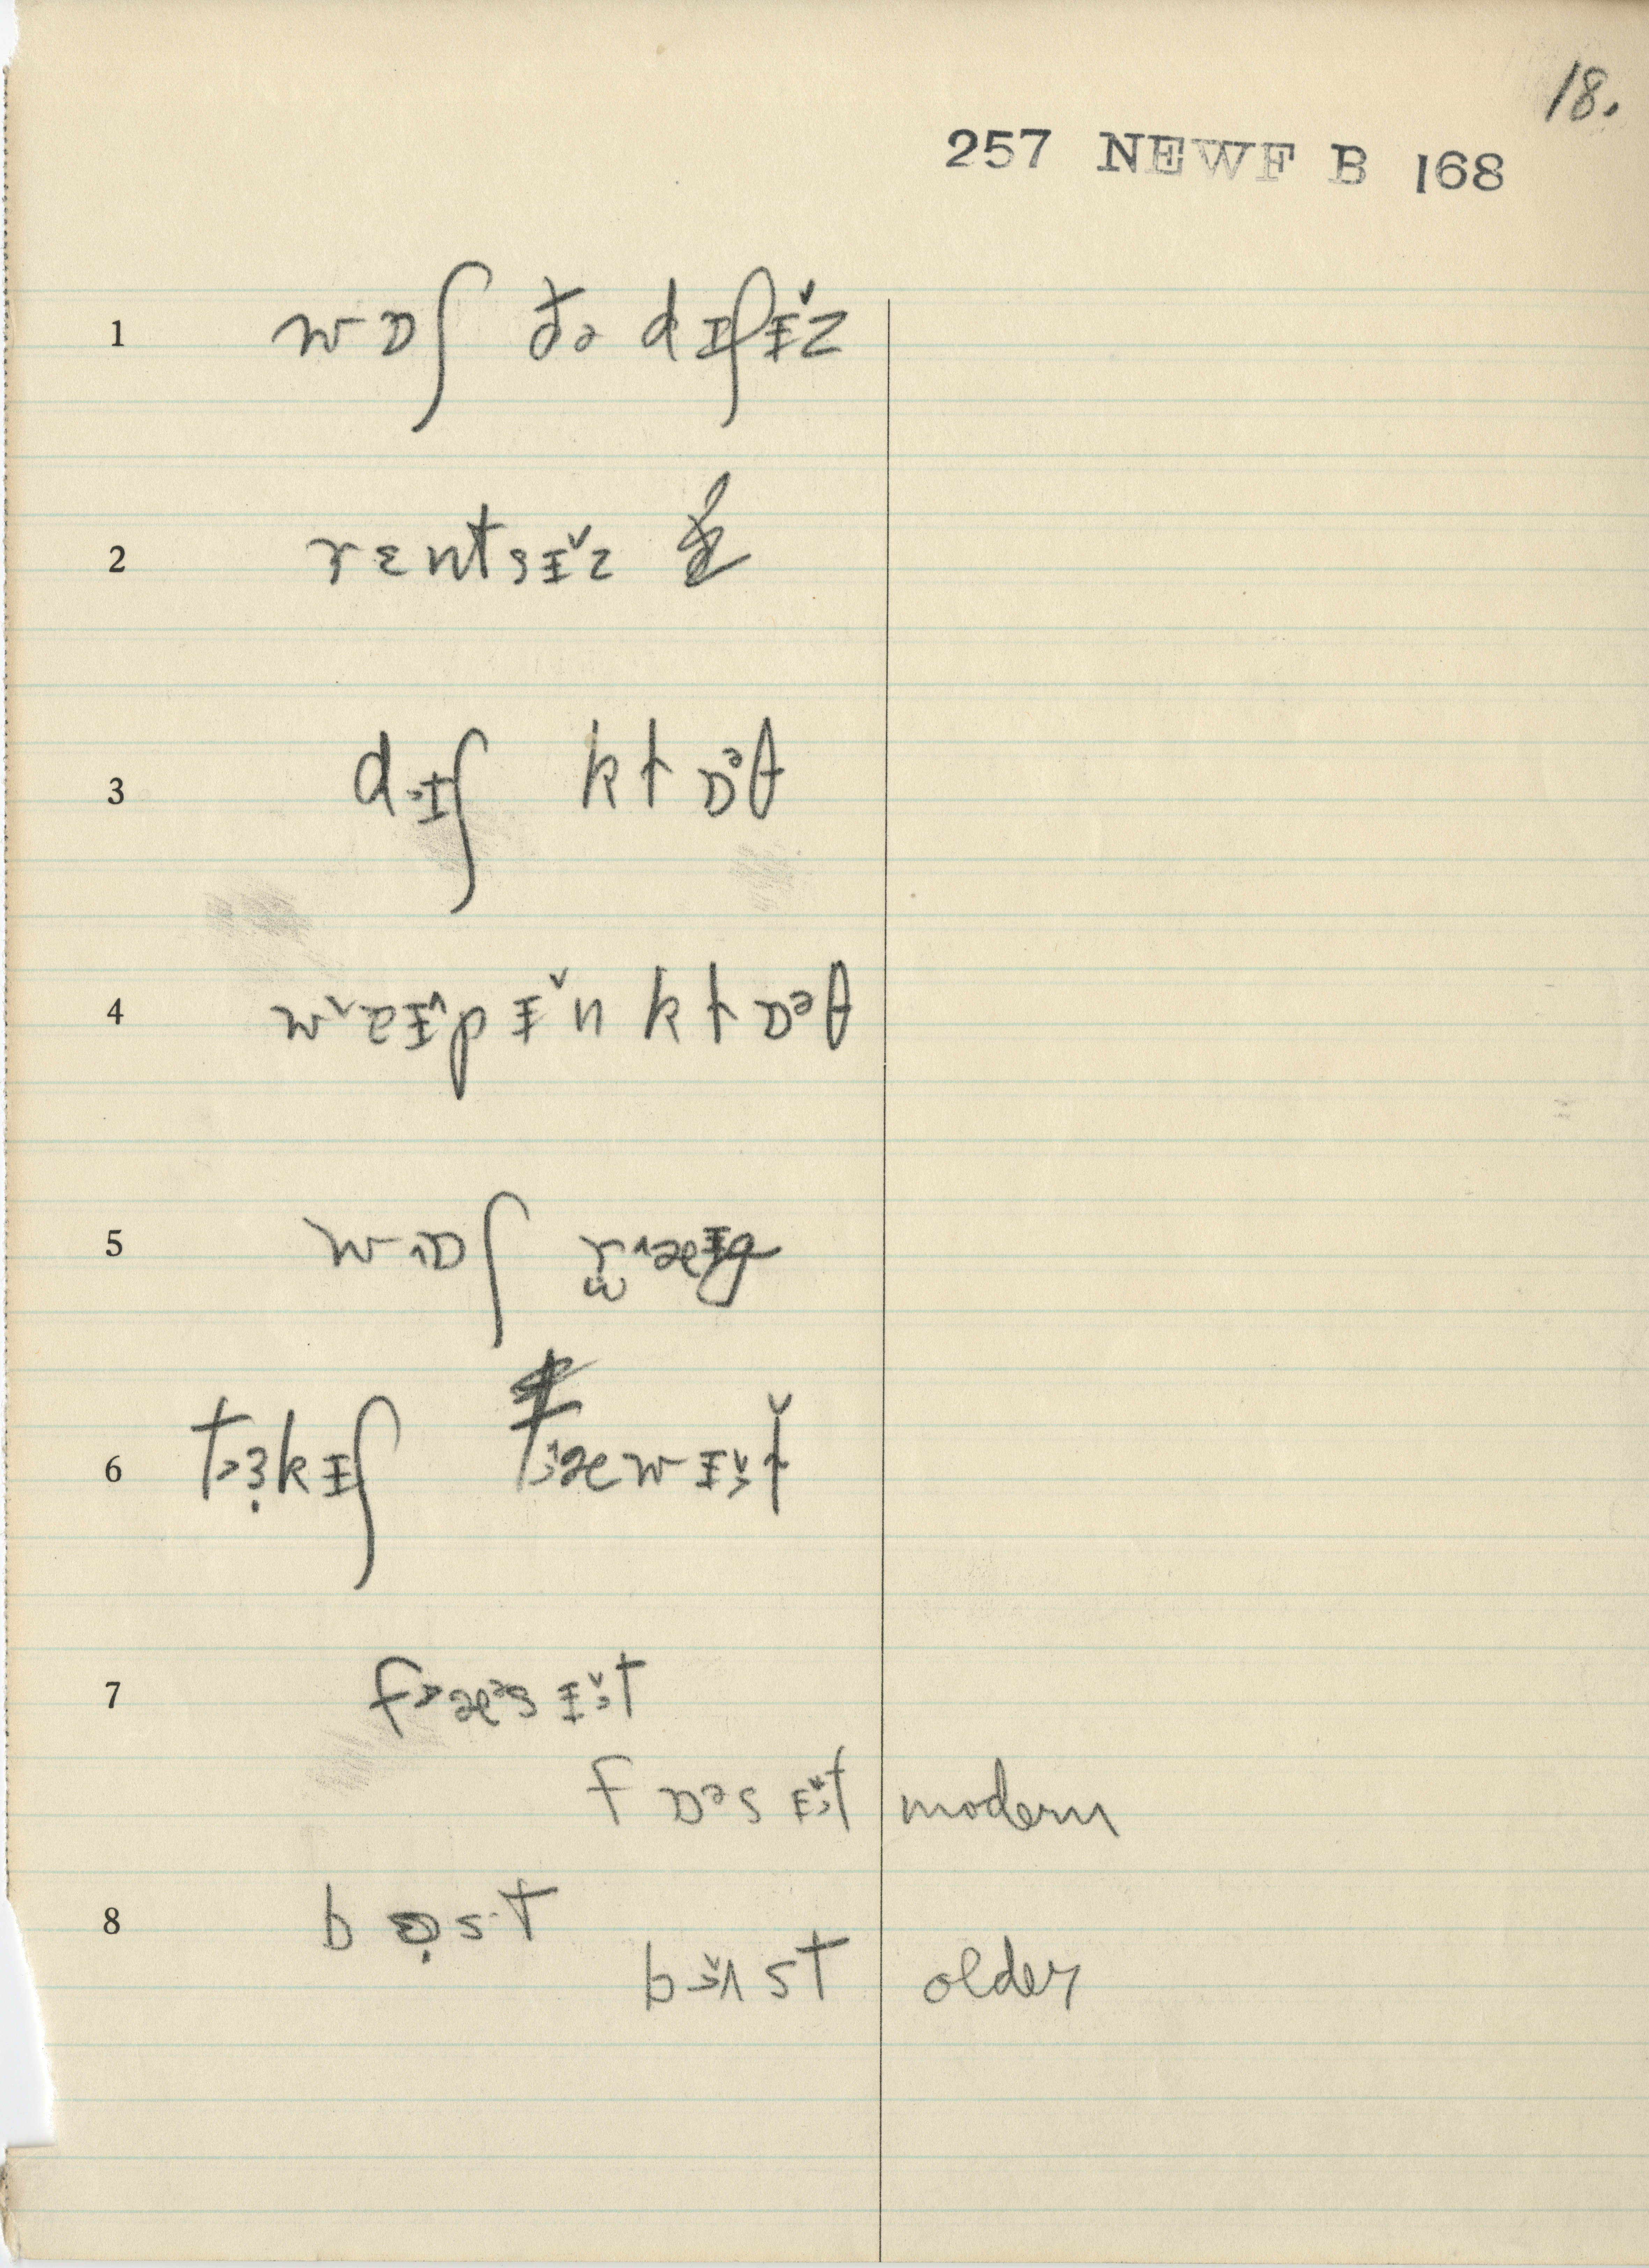 18.
257 NEWF B 168
1 wɒʃ ðə dɪʃɪ˅z
2 rɛntsɪ˅z
3 d˃ɪʃ klɒᵊθ
4 w˅eɪ^pɪ˅n klɒᵊθ
5 w^ɒʃ r̫^æɪg
6 t˃ɜ̣kɪʃ t˃^æwɪ˅˃ɫ
7 f˃æᵊsɪ˅˃t
fɒᵊsɪ˅˃t modern
8 bɒ̣st
b˃˅ʌst older